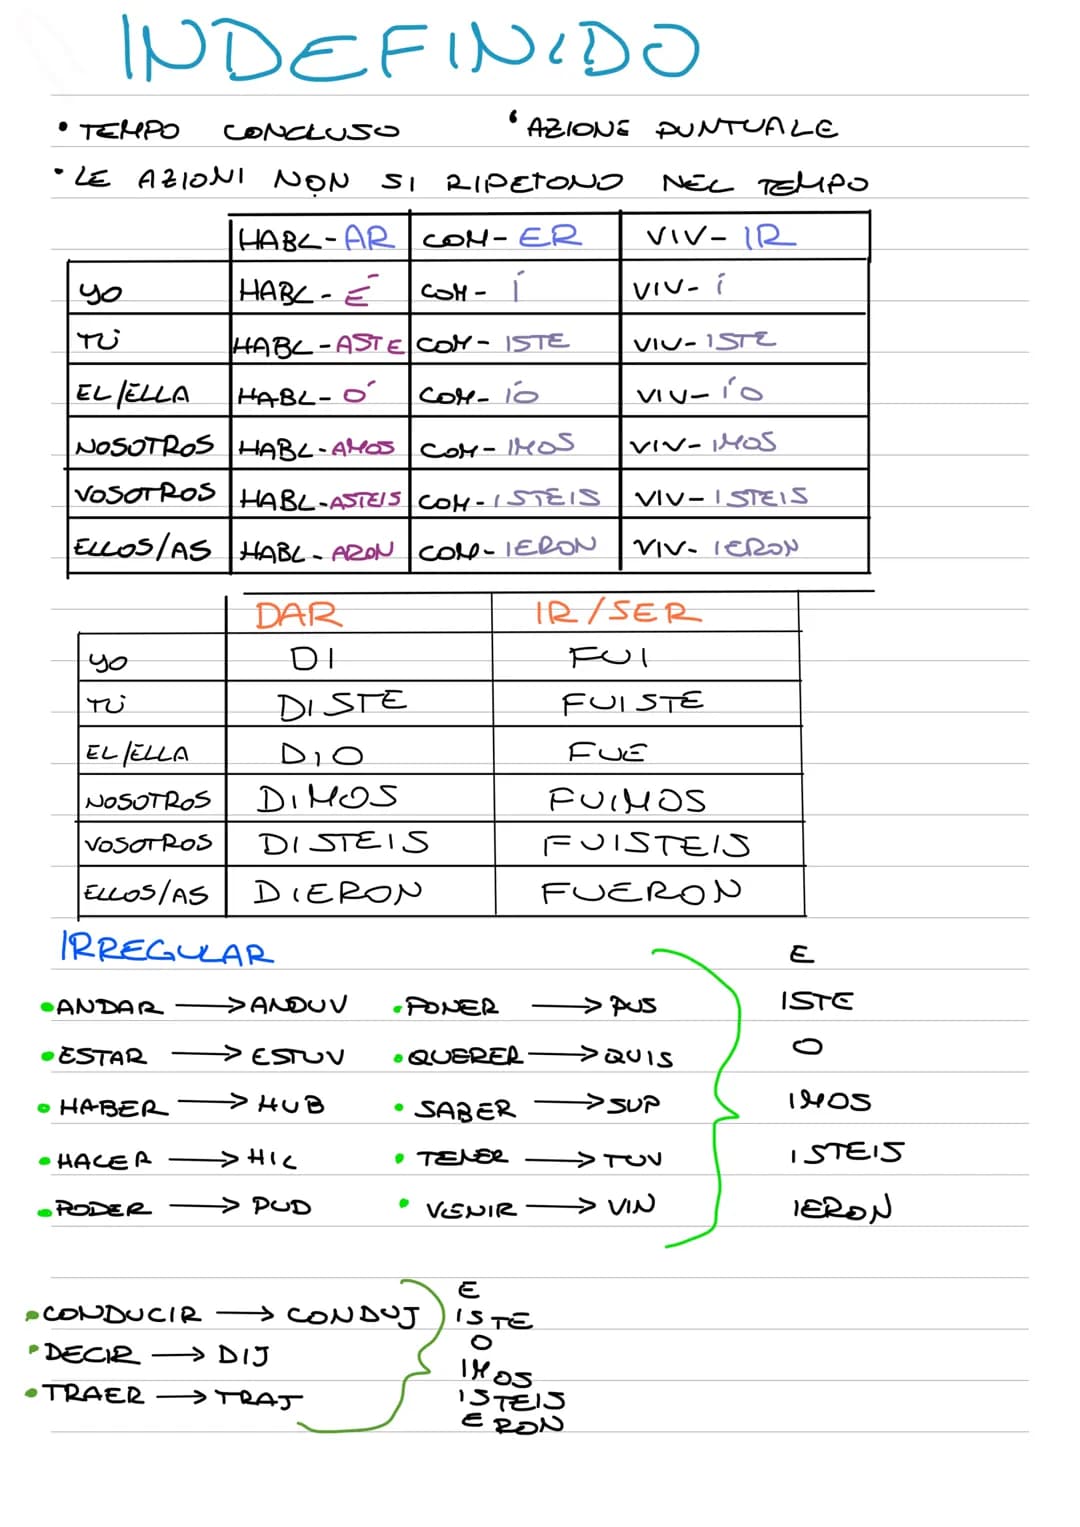 INDEFINIDO
• TEMPO CONCLUSO • AZIONE PUNTUALE
• LE AZIONI NON SI RIPETONO NEL TEMPO
HABL-AR COM-ER VIV-IR
YO HABL-É COM-Í VIV-Í
TÚ HABL-ASTE COM-ISTE VIV-ISTE
EL/ELLA HABL-Ó COM-IÓ VIV-ÍO
NOSOTROS HABL-AMOS COM-IMOS VIV-IMOS
VOSOTROS HABL-ASTEIS COM-ISTEIS VIV-ISTEIS
ELLOS/AS HABL-ARON COM-IERON VIV-IERON
DAR IR/SER
YO DI FUI
TÚ DISTE FUISTE
EL/ELLA DIO FUE
NOSOTROS DIMOS FUIMOS
VOSOTROS DISTEIS FUISTEIS
ELLOS/AS DIERON FUERON
IRREGULAR E
• ANDAR → ANDUV • PONER → PUS ISTE
• ESTAR → ESTUV • QUERER → QUIS O
• HABER → HUB • SABER → SUP IMOS
• HACER → HIC • TENER → TUV ISTEIS
• PODER → PUD • VENIR → VIN IERON
E
• CONDUCIR → CONDUJ ISTE
O
• DECIR → DIJ IMOS
• TRAER → TRAJ ISTEIS
ERON